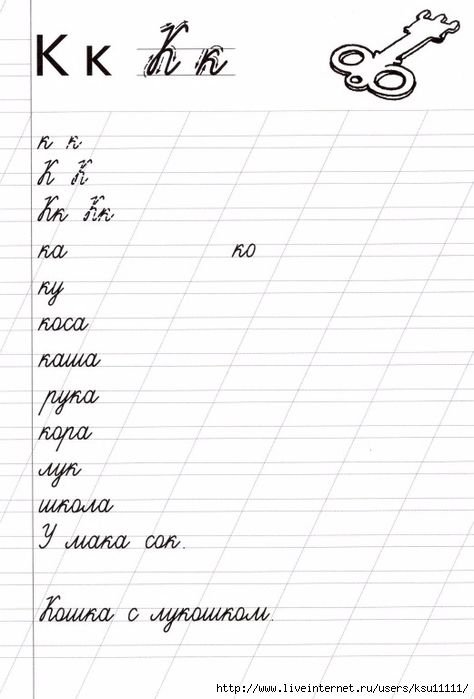 К к К к
к к
К К
Кк Кк
ка ко
ку
коса
каша
рука
кора
лук
школа
У мака сок.
Кошка с лукошком.
http://www.liveinternet.ru/users/ksu11111/